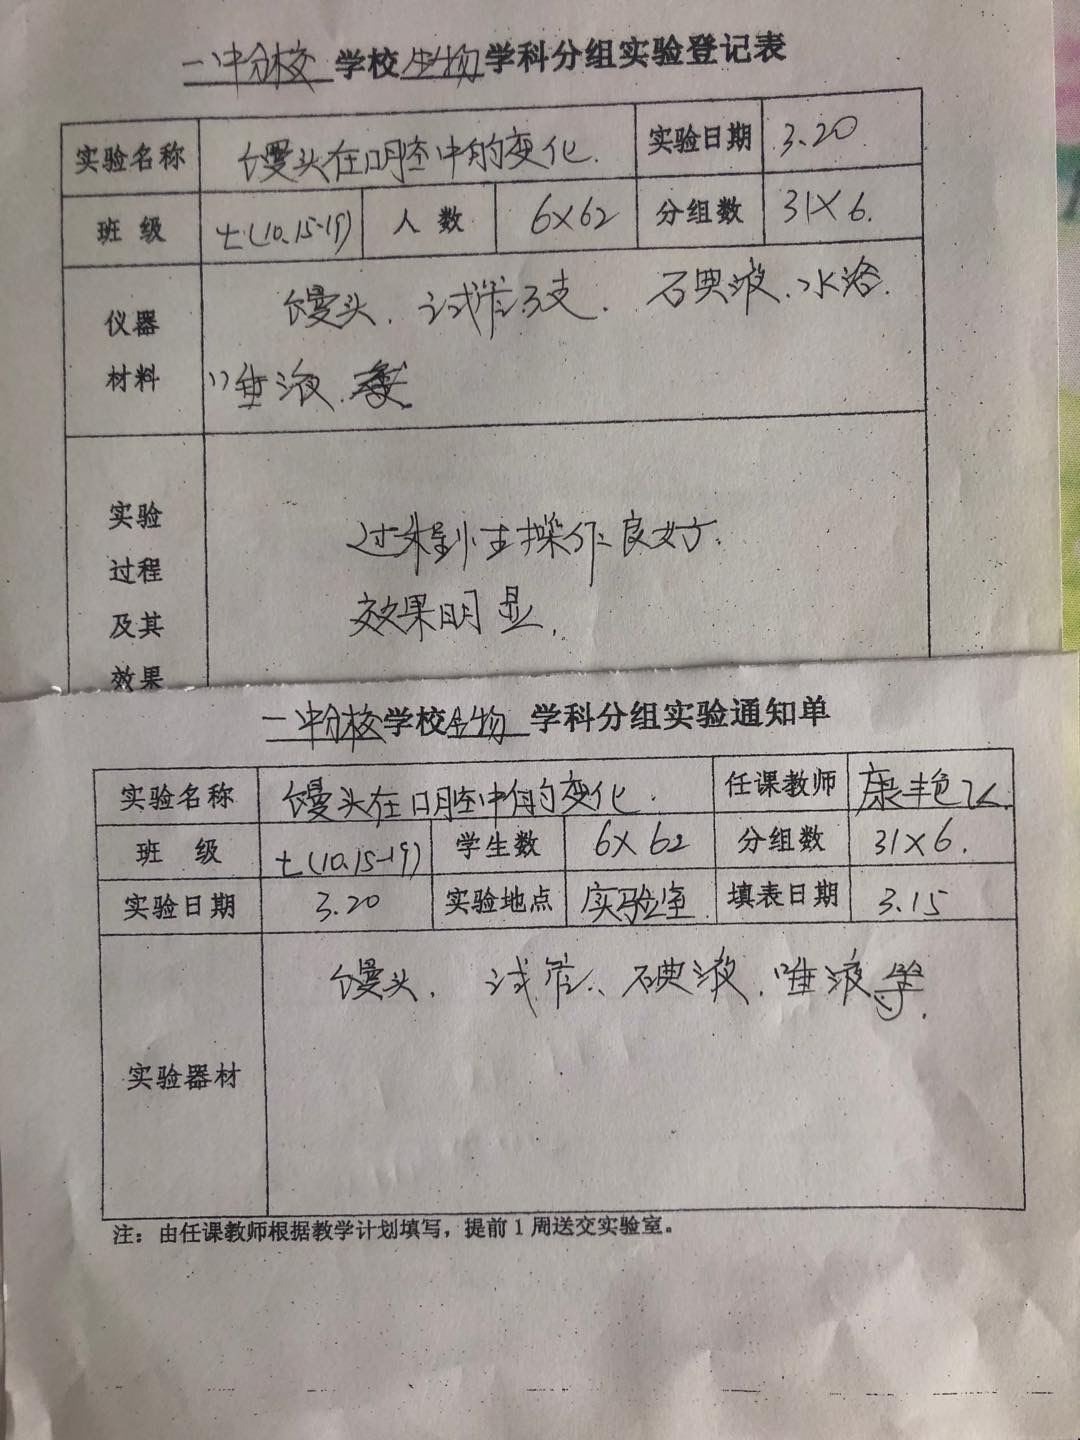 一中分校 学校 生物 学科分组实验登记表
实验名称 馒头在口腔中的变化. 实验日期 3.20
班 级 七(10.15-19) 人 数 6×62 分组数 31×6.
仪器材料 馒头. 试管3支. 碘液. 水浴.
唾液.
实验过程及其效果 过程 操作良好.
效果明显.
一中分校 学校 生物 学科分组实验通知单
实验名称 馒头在口腔中的变化. 任课教师 康艳
班 级 七(10.15-19) 学生数 6×62 分组数 31×6.
实验日期 3.20 实验地点 实验室 填表日期 3.15
实验器材 馒头. 试管、碘液. 唾液等.
注：由任课教师根据教学计划填写，提前1周送交实验室。